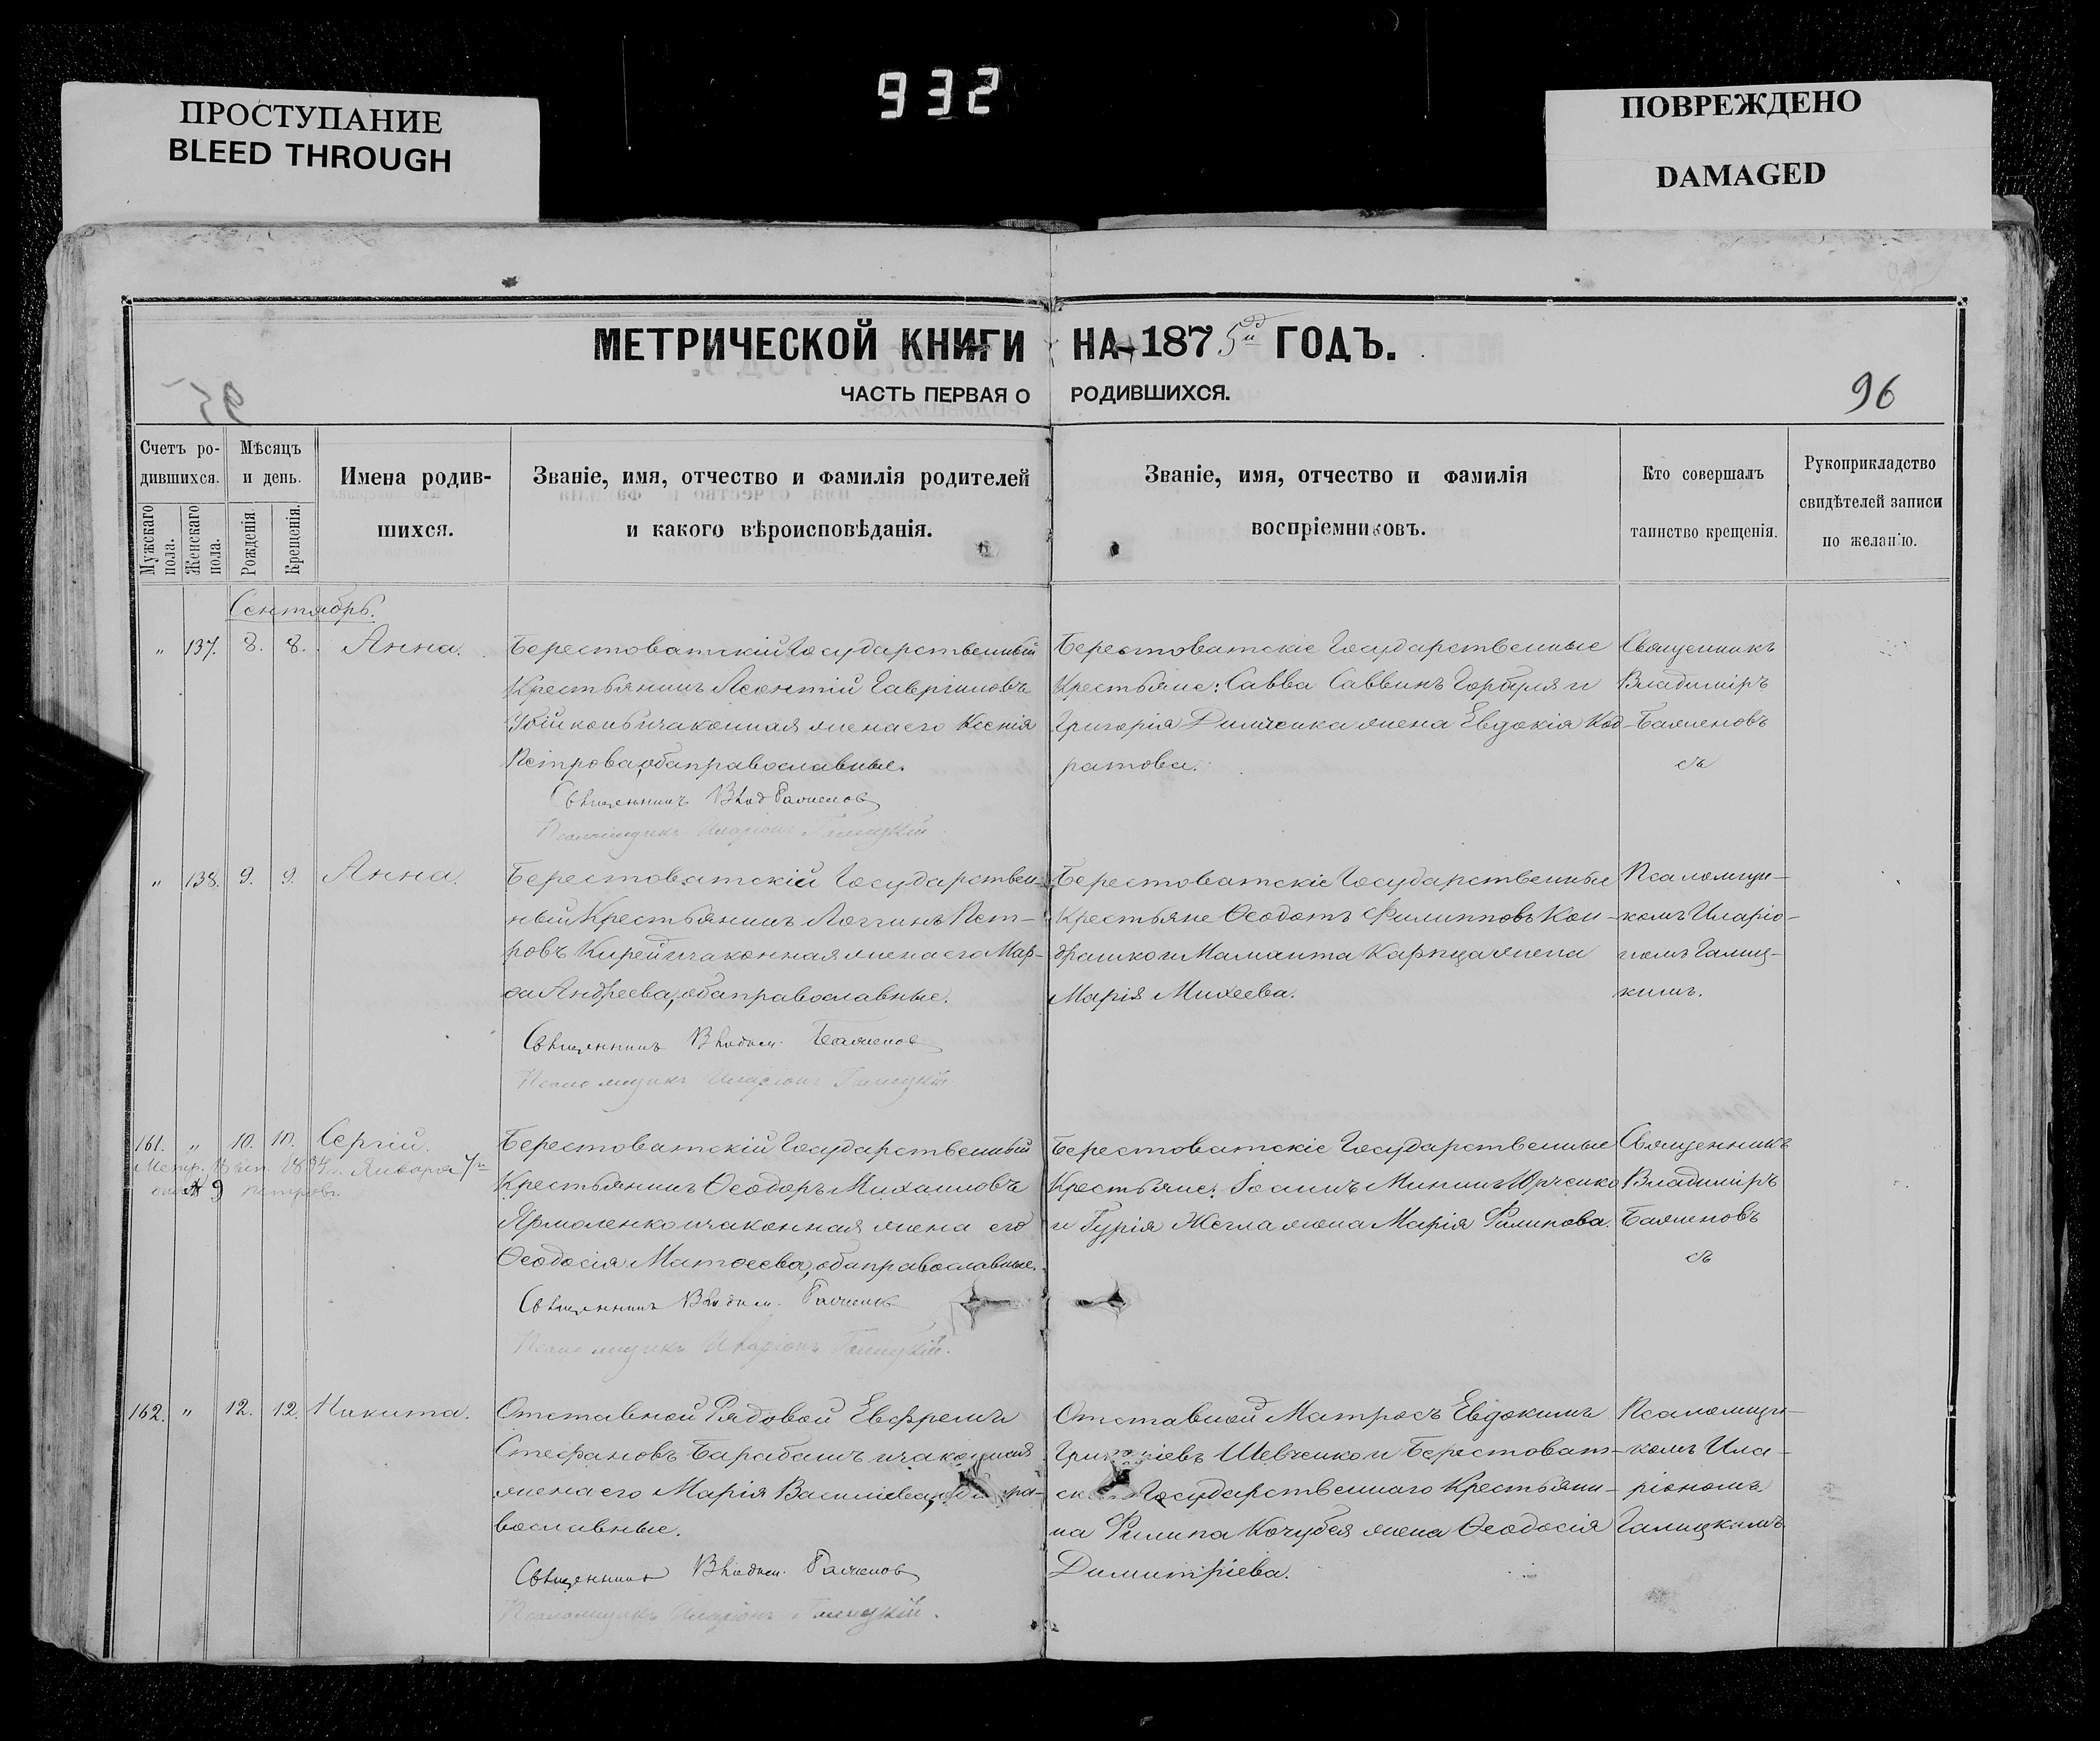 932
ПРОСТУПАНИЕ
BLEED THROUGH
ПОВРЕЖДЕНО
DAMAGED
МЕТРИЧЕСКОЙ КНИГИ НА 1875й ГОДЪ.
ЧАСТЬ ПЕРВАЯ О РОДИВШИХСЯ.
95
96
Счетъ ро-
дившихся.
Мужскаго
пола.
Женскаго
пола.
Мѣсяцъ
и день.
Рожденія.
Крещенія.
Имена родив-
шихся.
Званіе, имя, отчество и фамилія родителей
и какого вѣроисповѣданія.
Званіе, имя, отчество и фамилія
воспріемниковъ.
Кто совершалъ
таинство крещенія.
Рукоприкладство
свидѣтелей записи
по желанію.
Сентябрь.
" 137. 8. 8. Анна.
Берестоватскій Государственный
Крестьянинъ Леонтій Гавріиловъ
и законная жена его Ксенія
Петрова, оба православные.
Священникъ Влад Баженов
Псаломщикъ Иларіонъ Галицкій
Берестоватскіе Государственные
Крестьяне: Савва Саввинъ Горбуля и
Григорія жена Евдокія Код-
ратова.
Священникъ
Владиміръ
Баженовъ
съ
" 138. 9. 9. Анна.
Берестоватскій Государствен-
ный Крестьянинъ Логгинъ Пет-
ровъ Кирей и законная жена его Мар-
ѳа Андреева, оба православные.
Священникъ Владим. Баженов
Псаломщикъ Иларіонъ Галицкій
Берестоватскіе Государственные
Крестьяне Ѳеодотъ Филипповъ Кон-
драшко и Маманта Карпца жена
Марія Михеева.
Псаломщи-
комъ Иларіо-
номъ Галиц-
кимъ.
161. " 10. 10. Сергій.
Метр. Января
9
Берестоватскій Государственный
Крестьянинъ Ѳеодоръ Михаиловъ
Ярмоленко и законная жена его
Ѳеодосія Матѳеева, оба православные.
Священникъ Владим. Баженов
Псаломщикъ Иларіонъ Галицкій.
Берестоватскіе Государственные
Крестьяне: Іоаннъ Мининъ Юрченко
и Гурія Жегла жена Марія Филипова.
Священникъ
Владиміръ
Баженовъ
съ
162. " 12. 12. Никита.
Отставной Рядовой Евфремъ
Стефановъ Барабашъ и законная
жена его Марія Василіева, оба пра-
вославные.
Священникъ Владим. Баженов
Псаломщикъ Иларіонъ Галицкій.
Отставной Матросъ Евдокимъ
Григоріевъ Шевченко и Берестоват-
скаго Государственнаго Крестьяни-
на Филипа Кочубея жена Ѳеодосія
Димитріева.
Псаломщи-
комъ Ила-
ріономъ
Галицкимъ